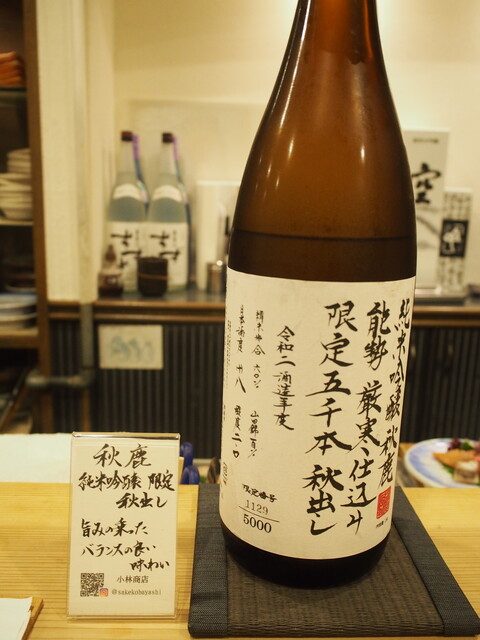 純米吟醸 秋鹿
能勢 厳寒仕込み
限定五千本 秋出し
令和二酒造年度
精米歩合 六〇%
山田錦 百%
日本酒度 +八
酸度 二.〇
限定番号
1129
5000
秋鹿
純米吟醸 限定
秋出し
旨みの乗った
バランスの良い
味わい
小林商店
@sakekobayashi
空